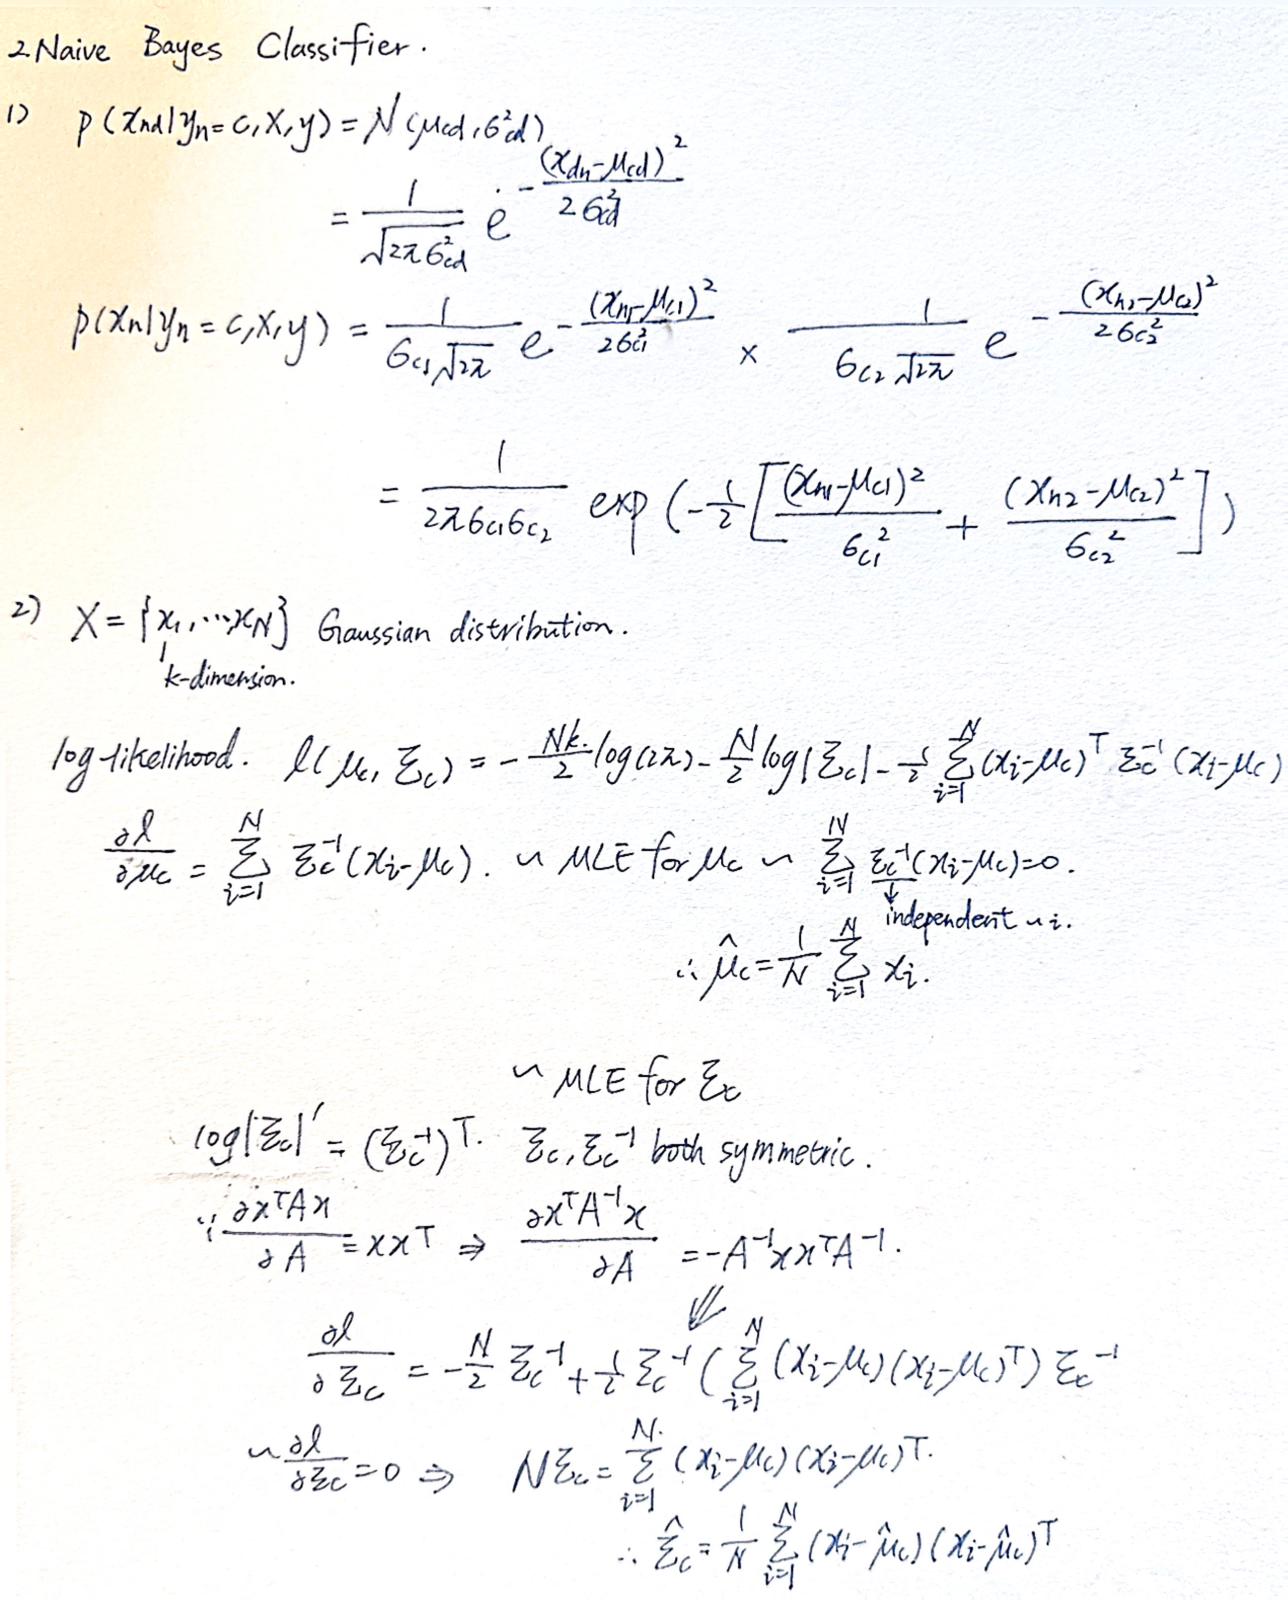 2 Naive Bayes Classifier.
1) p(x_nd|y_n=c,X,y) = N(μ_cd, σ²_cd)
= 1/√(2πσ²_cd) e^(-(x_dn-μ_cd)²/(2σ²_cd))
p(x_n|y_n=c,X,y) = 1/(σ_c1√2π) e^(-(x_n1-μ_c1)²/(2σ²_c1)) × 1/(σ_c2√2π) e^(-(x_n2-μ_c2)²/(2σ_c2²))
= 1/(2πσ_c1σ_c2) exp(-1/2[(x_n1-μ_c1)²/σ_c1² + (x_n2-μ_c2)²/σ_c2²])
2) X={x_1,⋯x_N} Gaussian distribution.
k-dimension.
log-likelihood. l(μ_c, Σ_c) = -Nk/2 log(2π) - N/2 log|Σ_c| - 1/2 Σ_{i=1}^N (x_i-μ_c)^T Σ_c^-1 (x_i-μ_c)
∂l/∂μ_c = Σ_{i=1}^N Σ_c^-1(x_i-μ_c). ~ MLE for μ_c ~ Σ_{i=1}^N Σ_c^-1(x_i-μ_c)=0.
↓
independent ~ i.
∴ μ̂_c = 1/N Σ_{i=1}^N x_i.
~ MLE for Σ_c
log|Σ_c|' = (Σ_c^-1)^T. Σ_c, Σ_c^-1 both symmetric.
∵ ∂x^TAx/∂A = xx^T ⇒ ∂x^TA^-1x/∂A = -A^-1xx^TA^-1.
⇓
∂l/∂Σ_c = -N/2 Σ_c^-1 + 1/2 Σ_c^-1 (Σ_{i=1}^N (x_i-μ_c)(x_i-μ_c)^T) Σ_c^-1
~ ∂l/∂Σ_c = 0 ⇒ NΣ_c = Σ_{i=1}^N (x_i-μ_c)(x_i-μ_c)^T.
∴ Σ̂_c = 1/N Σ_{i=1}^N (x_i-μ̂_c)(x_i-μ̂_c)^T